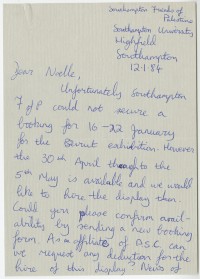 Southampton Friends of
Palestine
Southampton University
Highfield
Southampton
12.1.84
Dear Noelle,
Unfortunately Southampton
F of P could not secure a
booking for 16-22 January
for the exhibition. However
the 30th April to the
5th May is available and we would
like to hire the display then.
Could you please confirm avail-
ability by sending a new booking
form. As affiliates of can
we request any deduction for the
hire of this display. News of